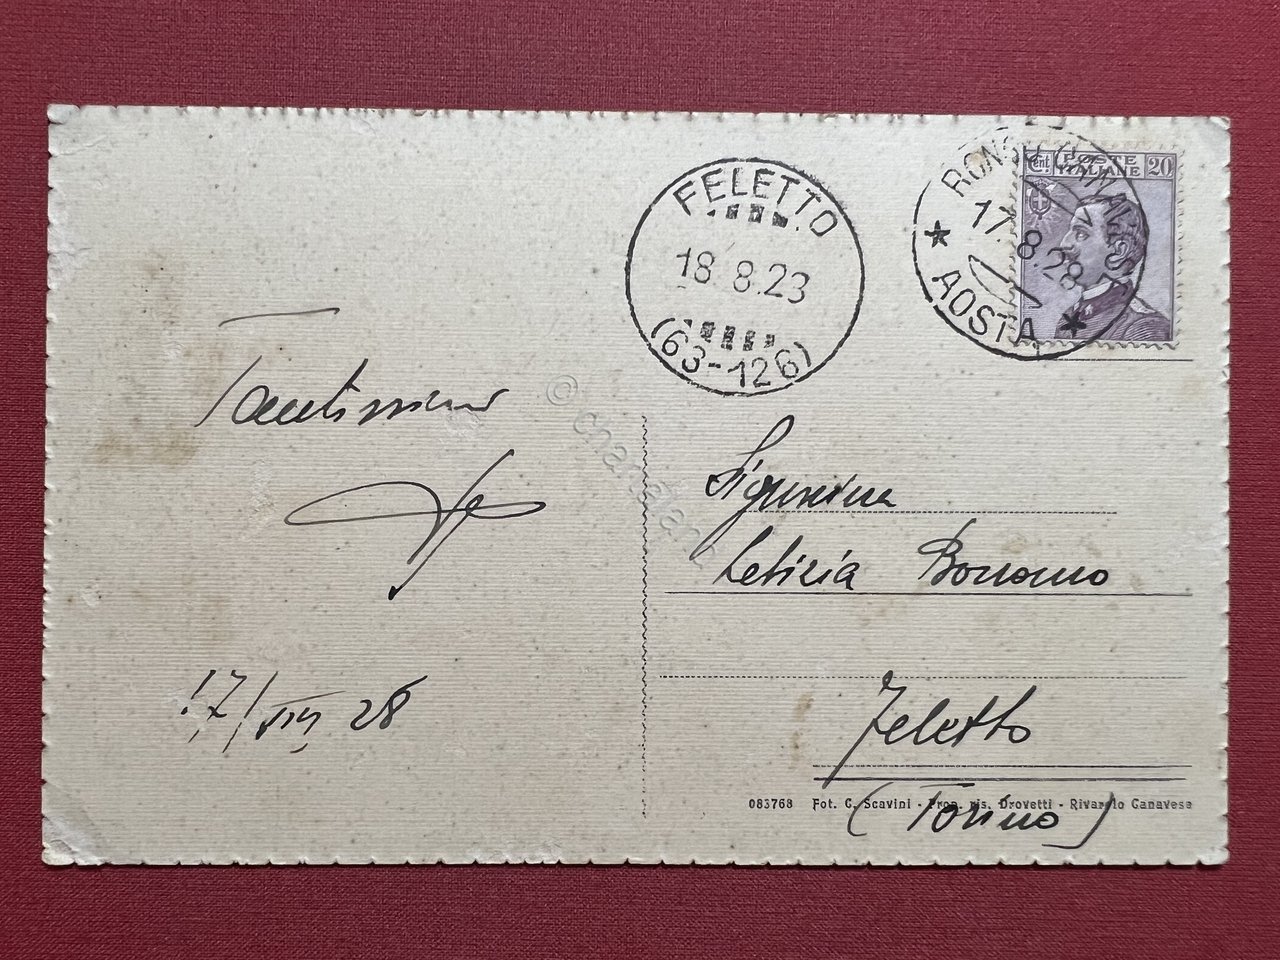 FELETTO
18.8.23
(63-126)
17.8.28
AOSTA
Cent. POSTE ITALIANE 20
© chartaland
Signorina
Letizia Bonomo
Feletto
(Torino)
17/VIII 28
083768 Fot. C. Scavini - Prop. ris. Drovetti - Rivarolo Canavese